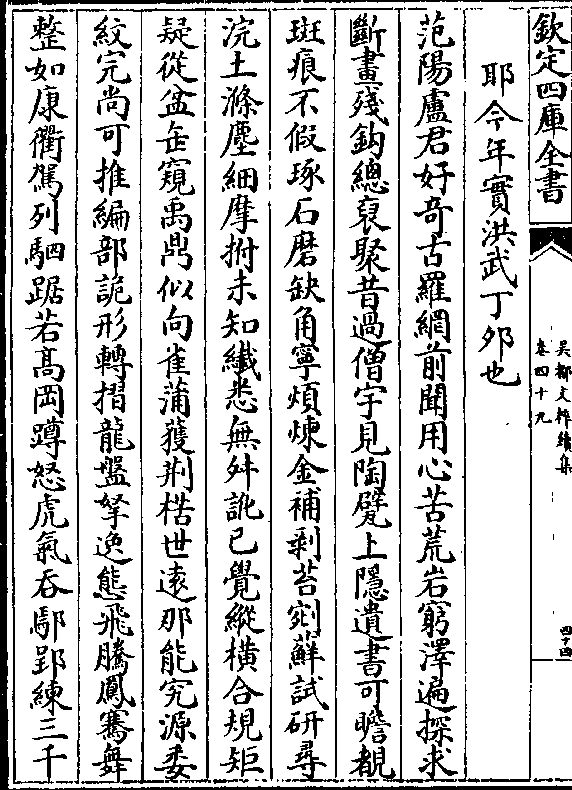 欽定四庫全書
吳都文粹續集
卷四十九
四十四
耶今年實洪武丁夘也
范陽盧君好奇古羅網前聞用心苦荒岩窮澤遍探求
斷畫殘鈎總裒聚昔過僧宇見陶甓上隱遺書可瞻覩
斑痕不假琢石磨缺角寧煩煉金補剥苔剜蘚試研尋
浣土滌塵細摩拊未知纎悉無舛訛已覺縱横合規矩
疑從盆缶窺禹鼎似向雀蒲獲荆楛世逺那能究源委
紋完尚可推編部詭形轉摺龍盤拏逸態飛騰鳳騫舞
整如康衢駕列駟踞若高岡蹲怒虎氣吞鄢郢練三千